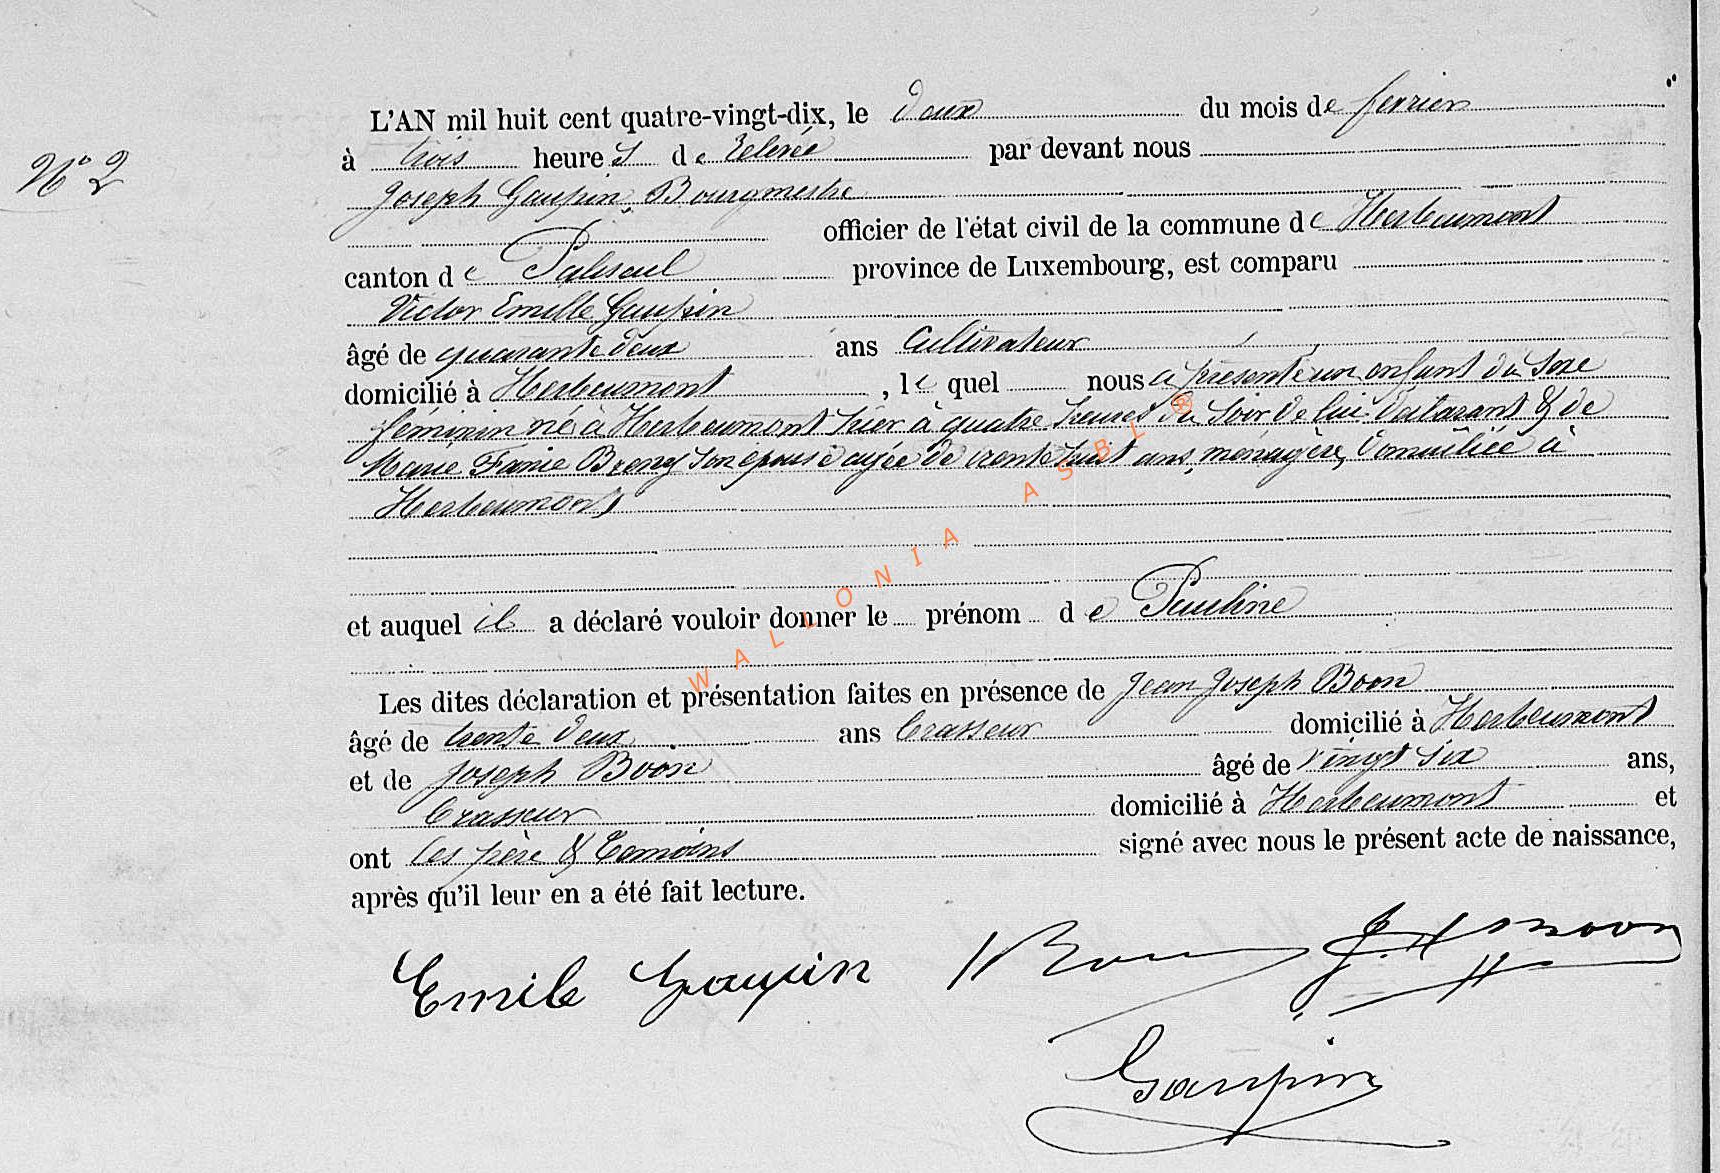 L'AN mil huit cent quatre-vingt-dix, le deux du mois de fevrier
N° 2
à trois heures de relevée par devant nous
Joseph Gaupin, Bourgmestre
officier de l'état civil de la commune de Herbeumont
canton de Paliseul province de Luxembourg, est comparu
Victor Emille Gaupin
âgé de quarante deux ans Cultivateur
domicilié à Herbeumont, lequel nous a présenté un enfant du Sexe
féminin né à Herbeumont hier à quatre heures du Soir de lui déclarant & de
Marie Son epouse agée de trente huit ans, ménagère, domiciliée à
Herbeumont
et auquel il a déclaré vouloir donner le prénom de Pauline
Les dites déclaration et présentation faites en présence de Jean Joseph Boon
âgé de trente deux ans brasseur domicilié à Herbeumont
et de Joseph Boon âgé de vingt six ans,
brasseur domicilié à Herbeumont et
ont les père & témoins signé avec nous le présent acte de naissance,
après qu'il leur en a été fait lecture.
Emile Gaupin Boon J. H Boon
Gaupin
WALLONIA ASBL ®